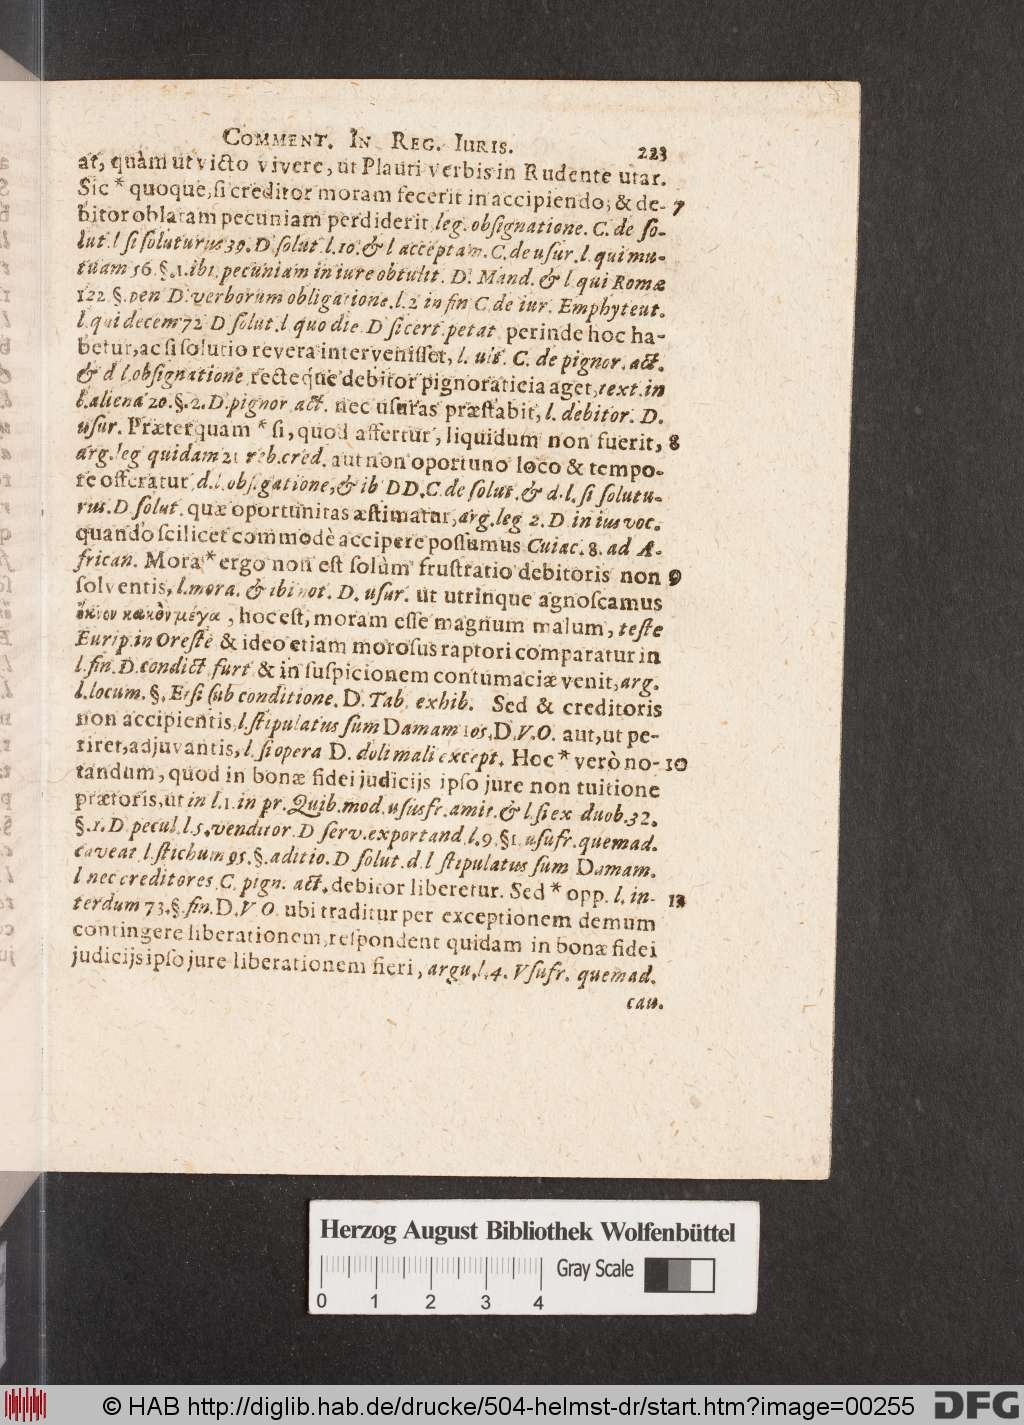 COMMENT. IN REG. IURIS. 223
at, quàm ut victo vivere, ut Plauti verbis in Rudente utar.
Sic * quoque, si creditor moram fecerit in accipiendo; & de- 7
bitor oblatam pecuniam perdiderit leg. obsignatione. C. de so-
lut. l si soluturus 39. D. solut. l. 10. & l acceptam. C. de usur. l. qui mu-
tuam 56. §. 1. ibi pecuniam in iure obtulit. D. Mand. & l qui Romæ
122 §. pen D. verborum obligatione. l. 2 in fin C. de iur. Emphyteut.
l. qui decem 72 D solut. l. quo die. D si cert. petat perinde hoc ha-
betur, ac si solutio revera intervenisset, l. ult. C. de pignor. act.
& d l. obsignatione recteque debitor pignoraticia aget, text. in
l. aliena 20. §. 2. D. pignor act. nec usuras præstabit, l. debitor. D.
usur. Præterquam * si, quod affertur, liquidum non fuerit, 8
arg. leg quidam 21 reb. cred. aut non oportuno loco & tempo-
re offeratur d. l. obsigatione, & ib DD. C de solut. & d. l. si solutu-
rus. D solut. quæ oportunitas æstimatur, arg. leg 2. D in ius voc.
quando scilicet commodè accipere possumus Cuiac. 8. ad A-
frican. Mora * ergo non est solùm frustratio debitoris non 9
solventis, l. mora. & ibi not. D. usur. ut utrinque agnoscamus
ὄκνον κακὸν μέγα, hoc est, moram esse magnum malum, teste
Eurip. in Oreste & ideo etiam morosus raptori comparatur in
l. fin. D. condict. furt & in suspicionem contumaciæ venit, arg.
l. locum. §. Etsi sub conditione. D. Tab. exhib. Sed & creditoris
non accipientis, l. stipulatus sum Damam 105. D. V. O. aut, ut pe-
riret, adjuvantis, l. si opera D. doli mali except. Hoc * verò no- 10
tandum, quod in bonæ fidei judicijs ipso jure non tuitione
prætoris, ut in l. 1. in pr. Quib. mod. ususfr. amit. & l. si ex duob. 32.
§. 1. D. pecul. l. 5. venditor. D serv. exportand l. 9. §1. usufr. quemad.
caveat. l. stichum 95. §. aditio. D solut. d. l stipulatus sum Damam.
l nec creditores. C. pign. act. debitor liberetur. Sed * opp. l. in-
terdum 73. §. fin. D. V O. ubi traditur per exceptionem demum
contingere liberationem, respondent quidam in bonæ fidei
judicijs ipso jure liberationem fieri, argu. l. 4. Vsufr. quemad.
cau.
Herzog August Bibliothek Wolfenbüttel
Gray Scale
0 1 2 3 4
© HAB http://diglib.hab.de/drucke/504-helmst-dr/start.htm?image=00255 DFG